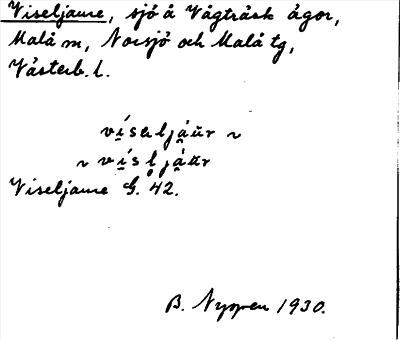 Viseljaure, sjö å Vågträsk ägor,
Malå m, Norsjö och Malå tg,
Västerb. l.
víseljá̯ŭr ~
~ vísl̥já̯ŭr
Viseljaure G. 42.
B. Nyppen 1930.